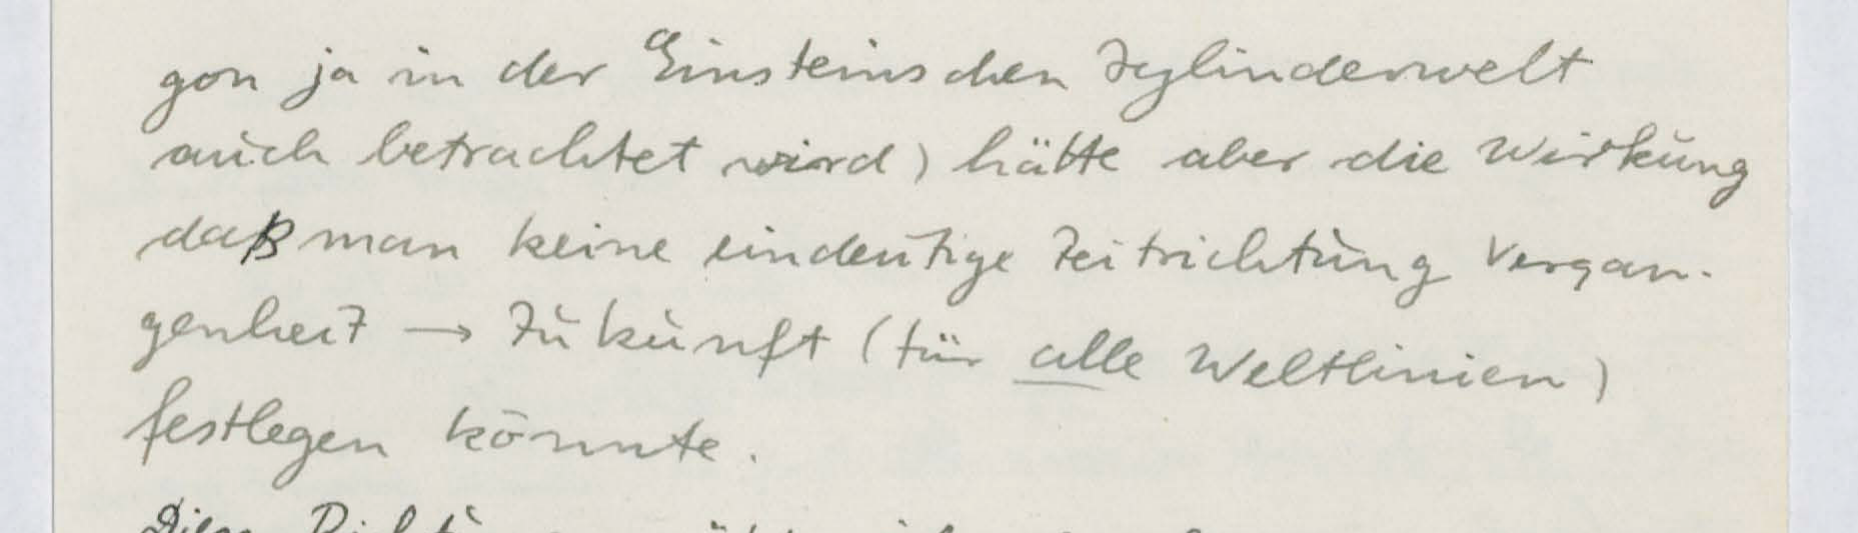 gon ja in der Einsteinschen Zylinderwelt
auch betrachtet wird) hätte aber die Wirkung
daß man keine eindeutige Zeitrichtung Vergan-
genheit → Zukunft (für alle Weltlinien)
festlegen könnte.
Diese